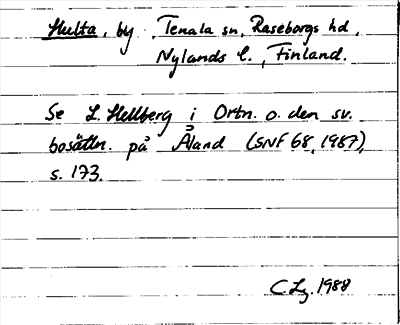 Hulta, by, Tenala sn, Raseborgs hd,
Nylands l., Finland.
Se L. Hellberg i Ortn. o. den sv.
bosättn. på Åland (SNF 68, 1987),
s. 173.
C.Lg. 1988